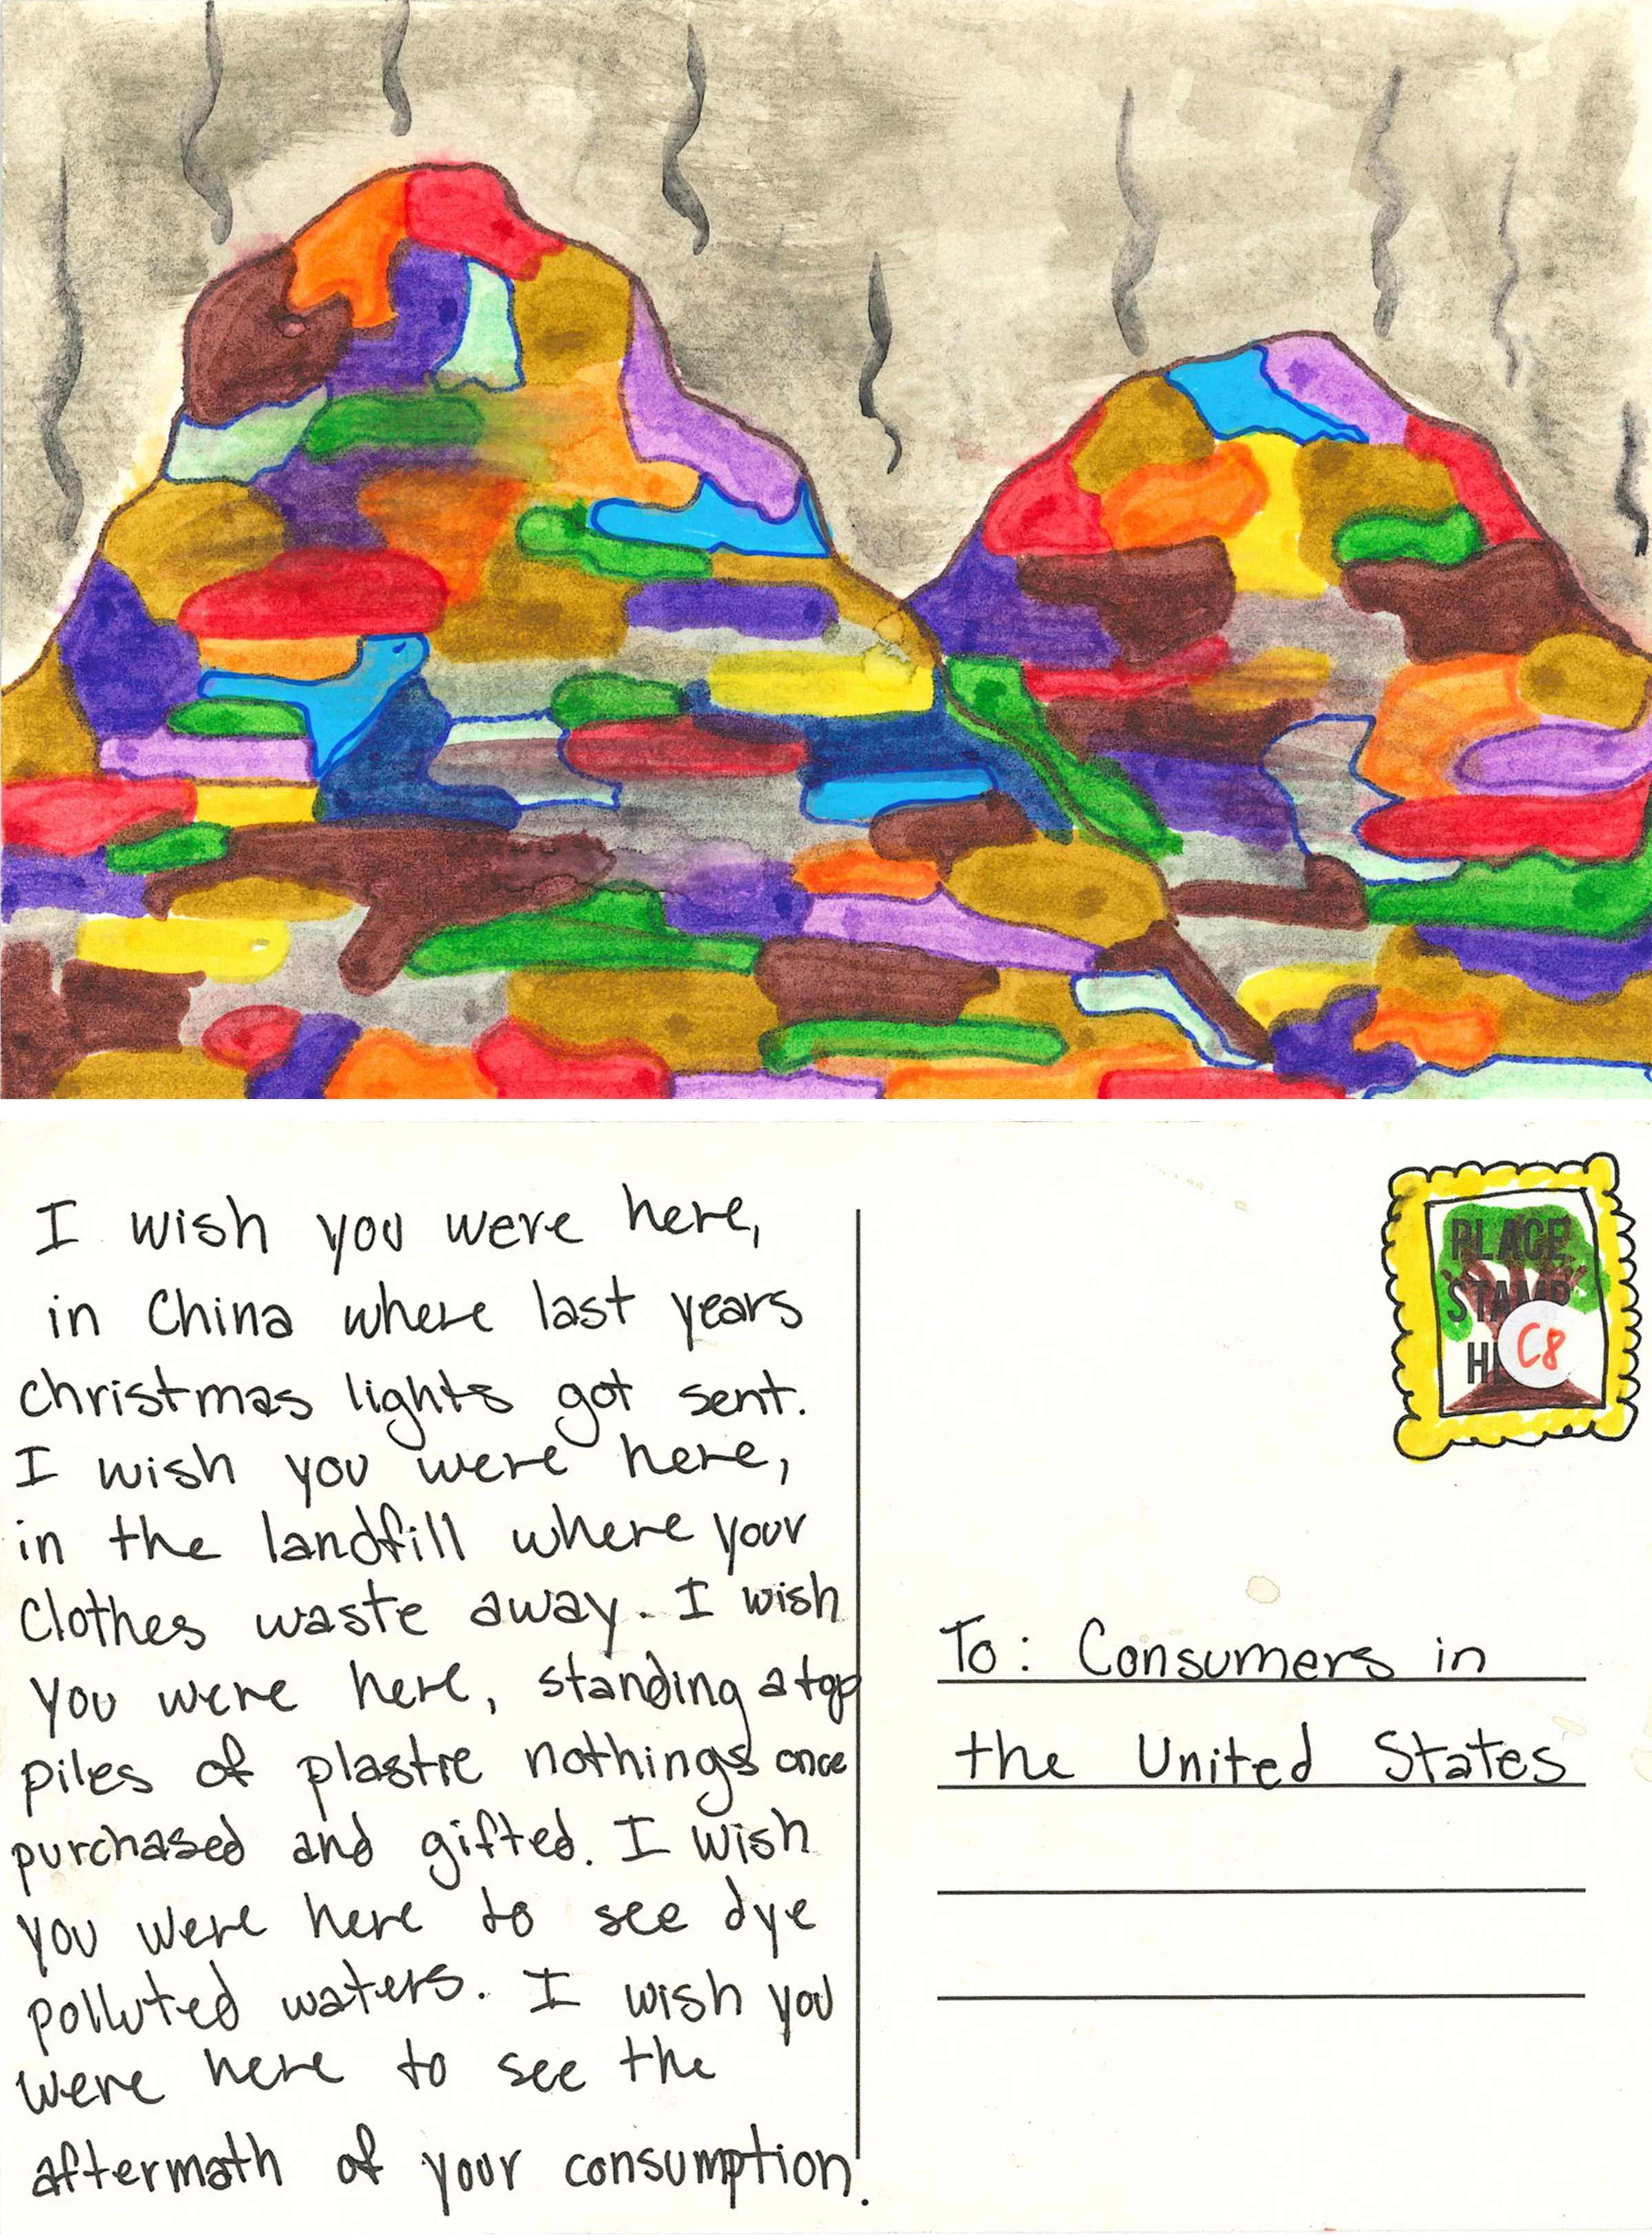 I wish you were here,
in China where last years
christmas lights got sent.
I wish you were here,
in the landfill where your
Clothes waste away. I wish
you were here, standing atop
piles of plastic nothings once
purchased and gifted. I wish
you were here to see dye
polluted waters. I wish you
were here to see the
aftermath of your consumption.
PLACE
STAMP
C8
To: Consumers in
the United States